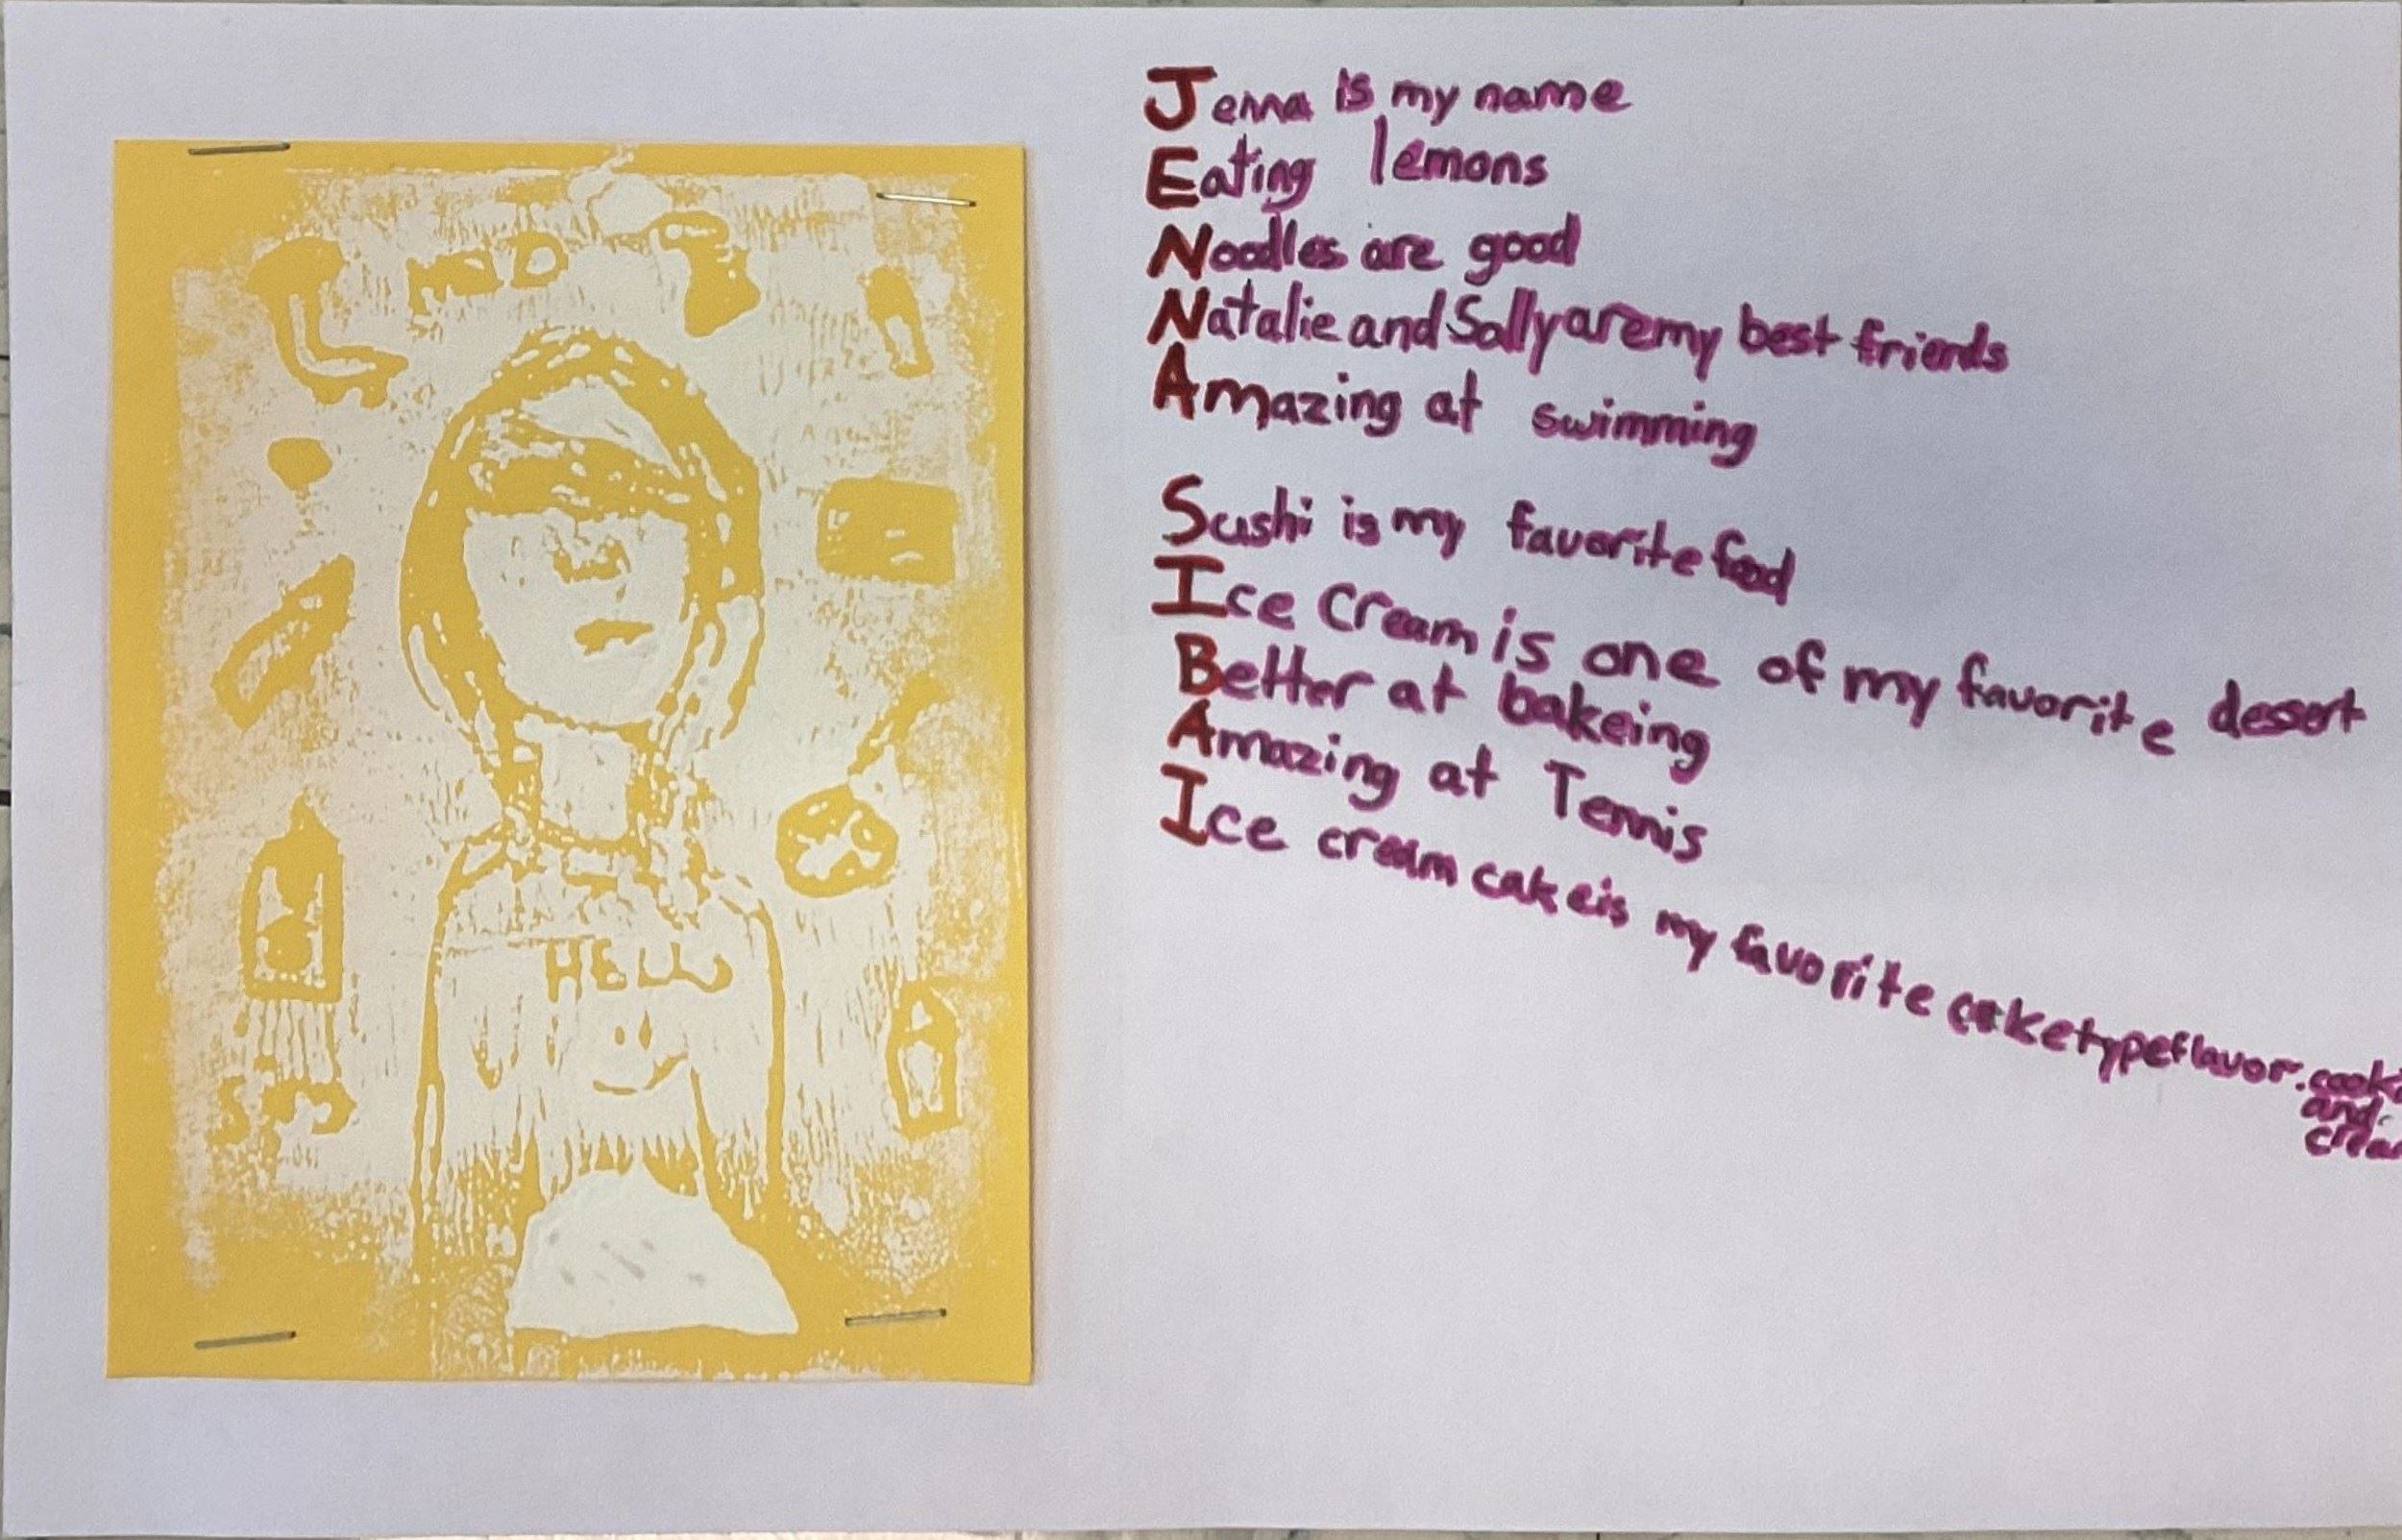 HELLO
Jenna is my name
Eating lemons
Noodles are good
Natalie and Sally are my best friends
Amazing at swimming
Sushi is my favorite food
Ice Cream is one of my favorite dessert
Better at bakeing
Amazing at Tennis
Ice cream cake is my favorite cake type flavor. cooki
and
crea